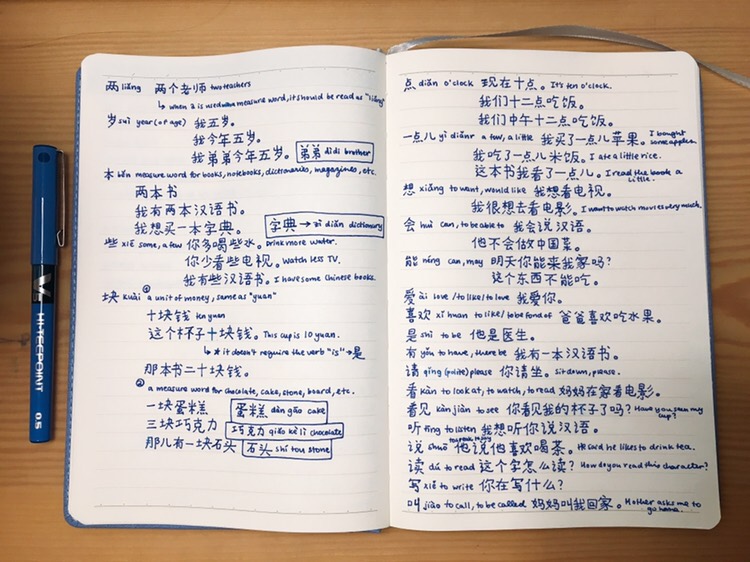 两 liǎng 两个老师 two teachers
↳ when 2 is used when measure word, it should be read as "liǎng"
岁 suì year (of age) 我五岁。
我今年五岁。
我弟弟今年五岁。 弟弟 dìdi brother
本 běn measure word for books, notebooks, dictionaries, magazines, etc.
两本书
我有两本汉语书。
我想买一本字典。 字典 → zì diǎn dictionary
些 xiē some, a few 你多喝些水。 Drink more water.
你少看些电视。 Watch less TV.
我有些汉语书。 I have some Chinese books.
块 kuài ① a unit of money, same as "yuan"
十块钱 ten yuan
这个杯子十块钱。 This cup is 10 yuan.
↳ * it doesn't require the verb "is" → 是
那本书二十块钱。
② a measure word for chocolate, cake, stone, board, etc.
一块蛋糕 蛋糕 dàn gāo cake
三块巧克力 巧克力 qiǎo kè lì chocolate
那儿有一块石头 石头 shí tou stone
点 diǎn o'clock 现在十点。 It's ten o'clock.
我们十二点吃饭。
我们中午十二点吃饭。
一点儿 yì diǎnr a few, a little 我买了一点儿苹果。 I bought some apples.
我吃了一点儿米饭。 I ate a little rice.
这本书我看了一点儿。 I read the book a little.
想 xiǎng to want, would like 我想看电视。
我很想去看电影。 I want to watch movies very much.
会 huì can, to be able to 我会说汉语。
他不会做中国菜。
能 néng can, may 明天你能来我家吗?
这个东西不能吃。
爱 ài love / to like / to love 我爱你。
喜欢 xǐ huan to like / to be fond of 爸爸喜欢吃水果。
是 shì to be 他是医生。
有 yǒu to have, there be 我有一本汉语书。
请 qǐng (polite) please 你请坐。 sit down, please.
看 kàn to look at, to watch, to read 妈妈在家看电影。
看见 kàn jiàn to see 你看见我的杯子了吗? Have you seen my cup?
听 tīng to listen 我想听你说汉语。
说 shuō to speak, to say 他说他喜欢喝茶。 He said he likes to drink tea.
读 dú to read 这个字怎么读? How do you read this character?
写 xiě to write 你在写什么?
叫 jiào to call, to be called 妈妈叫我回家。 Mother asks me to go home.
HI-TECPOINT
V
0.5